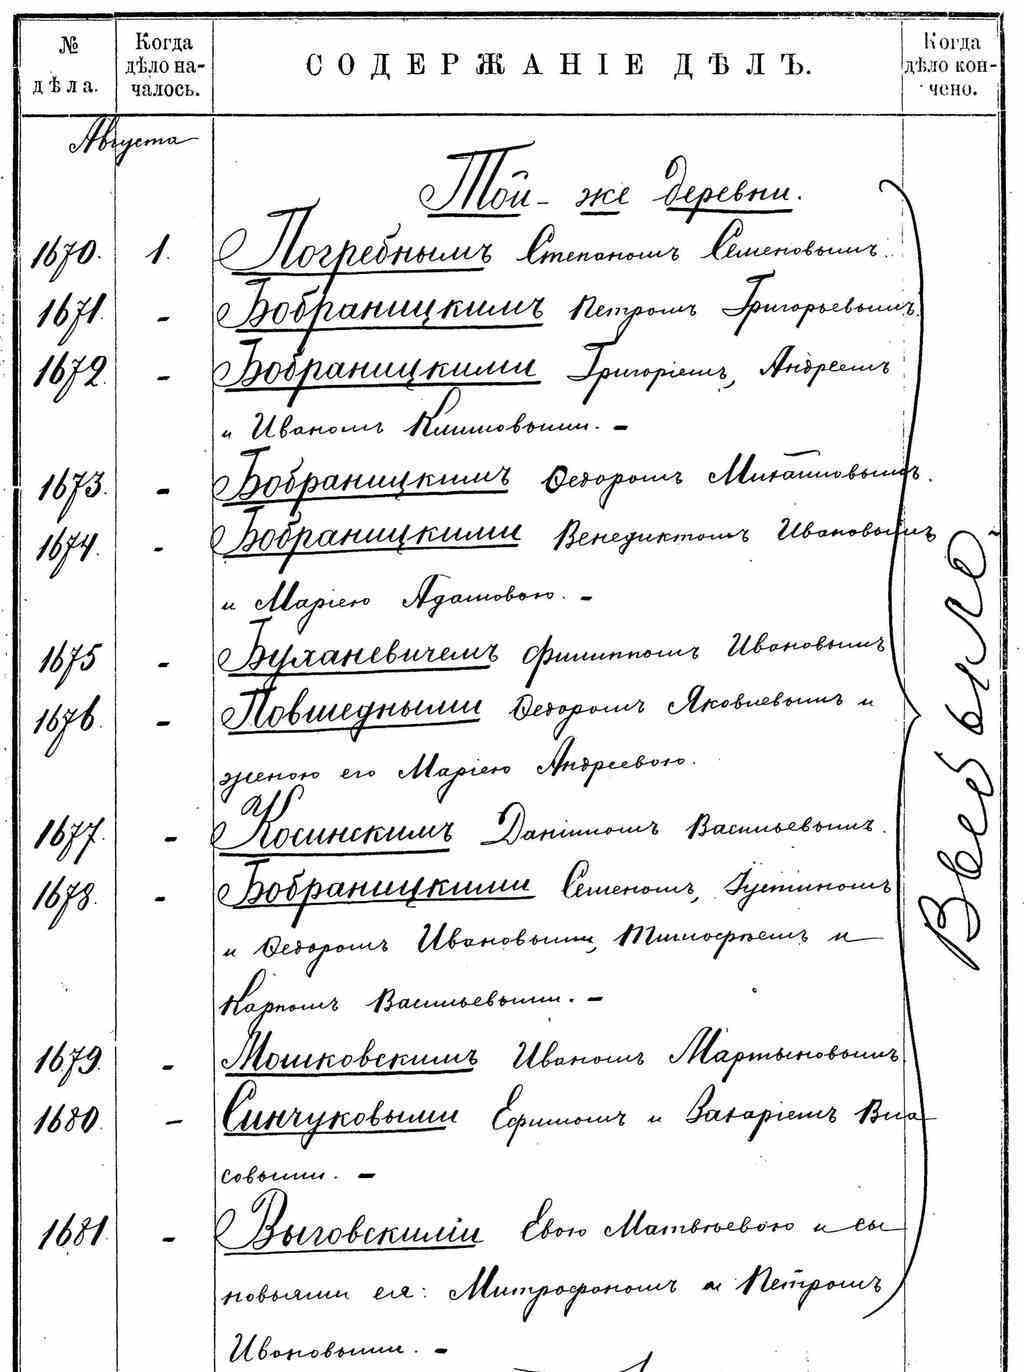 № дѣла.
Когда дѣло на-чалось.
СОДЕРЖАНІЕ ДѢЛЪ.
Когда дѣло кон-чено.
Августа
Той-же деревни.
1670. 1. Погребнымъ Степаномъ Семеновымъ.
1671. - Бобраницкимъ Петромъ Григорьевымъ.
1672. - Бобраницкими Григоріемъ, Андреемъ
и Иваномъ Климовыми. -
1673. - Бобраницкимъ Ѳедоромъ Михайловымъ.
1674. - Бобраницкими Венедиктомъ Ивановымъ
и Маріею Адамовою. -
1675 - Буханевичемъ Филиппомъ Ивановымъ
1676. - Повшедными Ѳедоромъ Яковлевымъ и
женою его Маріею Андреевою.
1677. - Косинскимъ Даніиломъ Васильевымъ.
1678. - Бобраницкими Семеномъ, Іустиномъ
и Ѳедоромъ Ивановыми, Тимофѣемъ и
Карпомъ Васильевыми. -
1679. - Мошковскимъ Иваномъ Мартыновымъ
1680. - Синчуковыми Ефимомъ и Захаріемъ Вла
совыми. -
1681 - Выговскими Евою Матвѣевою и сы
новьями ея: Митрофаномъ и Петромъ
Ивановыми. -